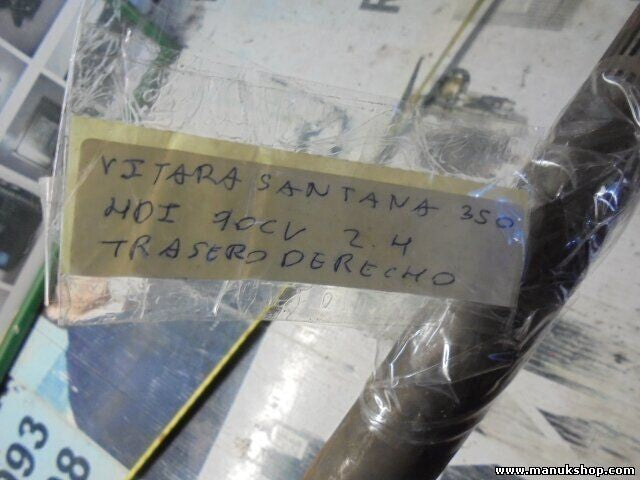 VITARA SANTANA 350
HDI 90CV 2.4
TRASERO DERECHO
993
08
www.manukshop.com